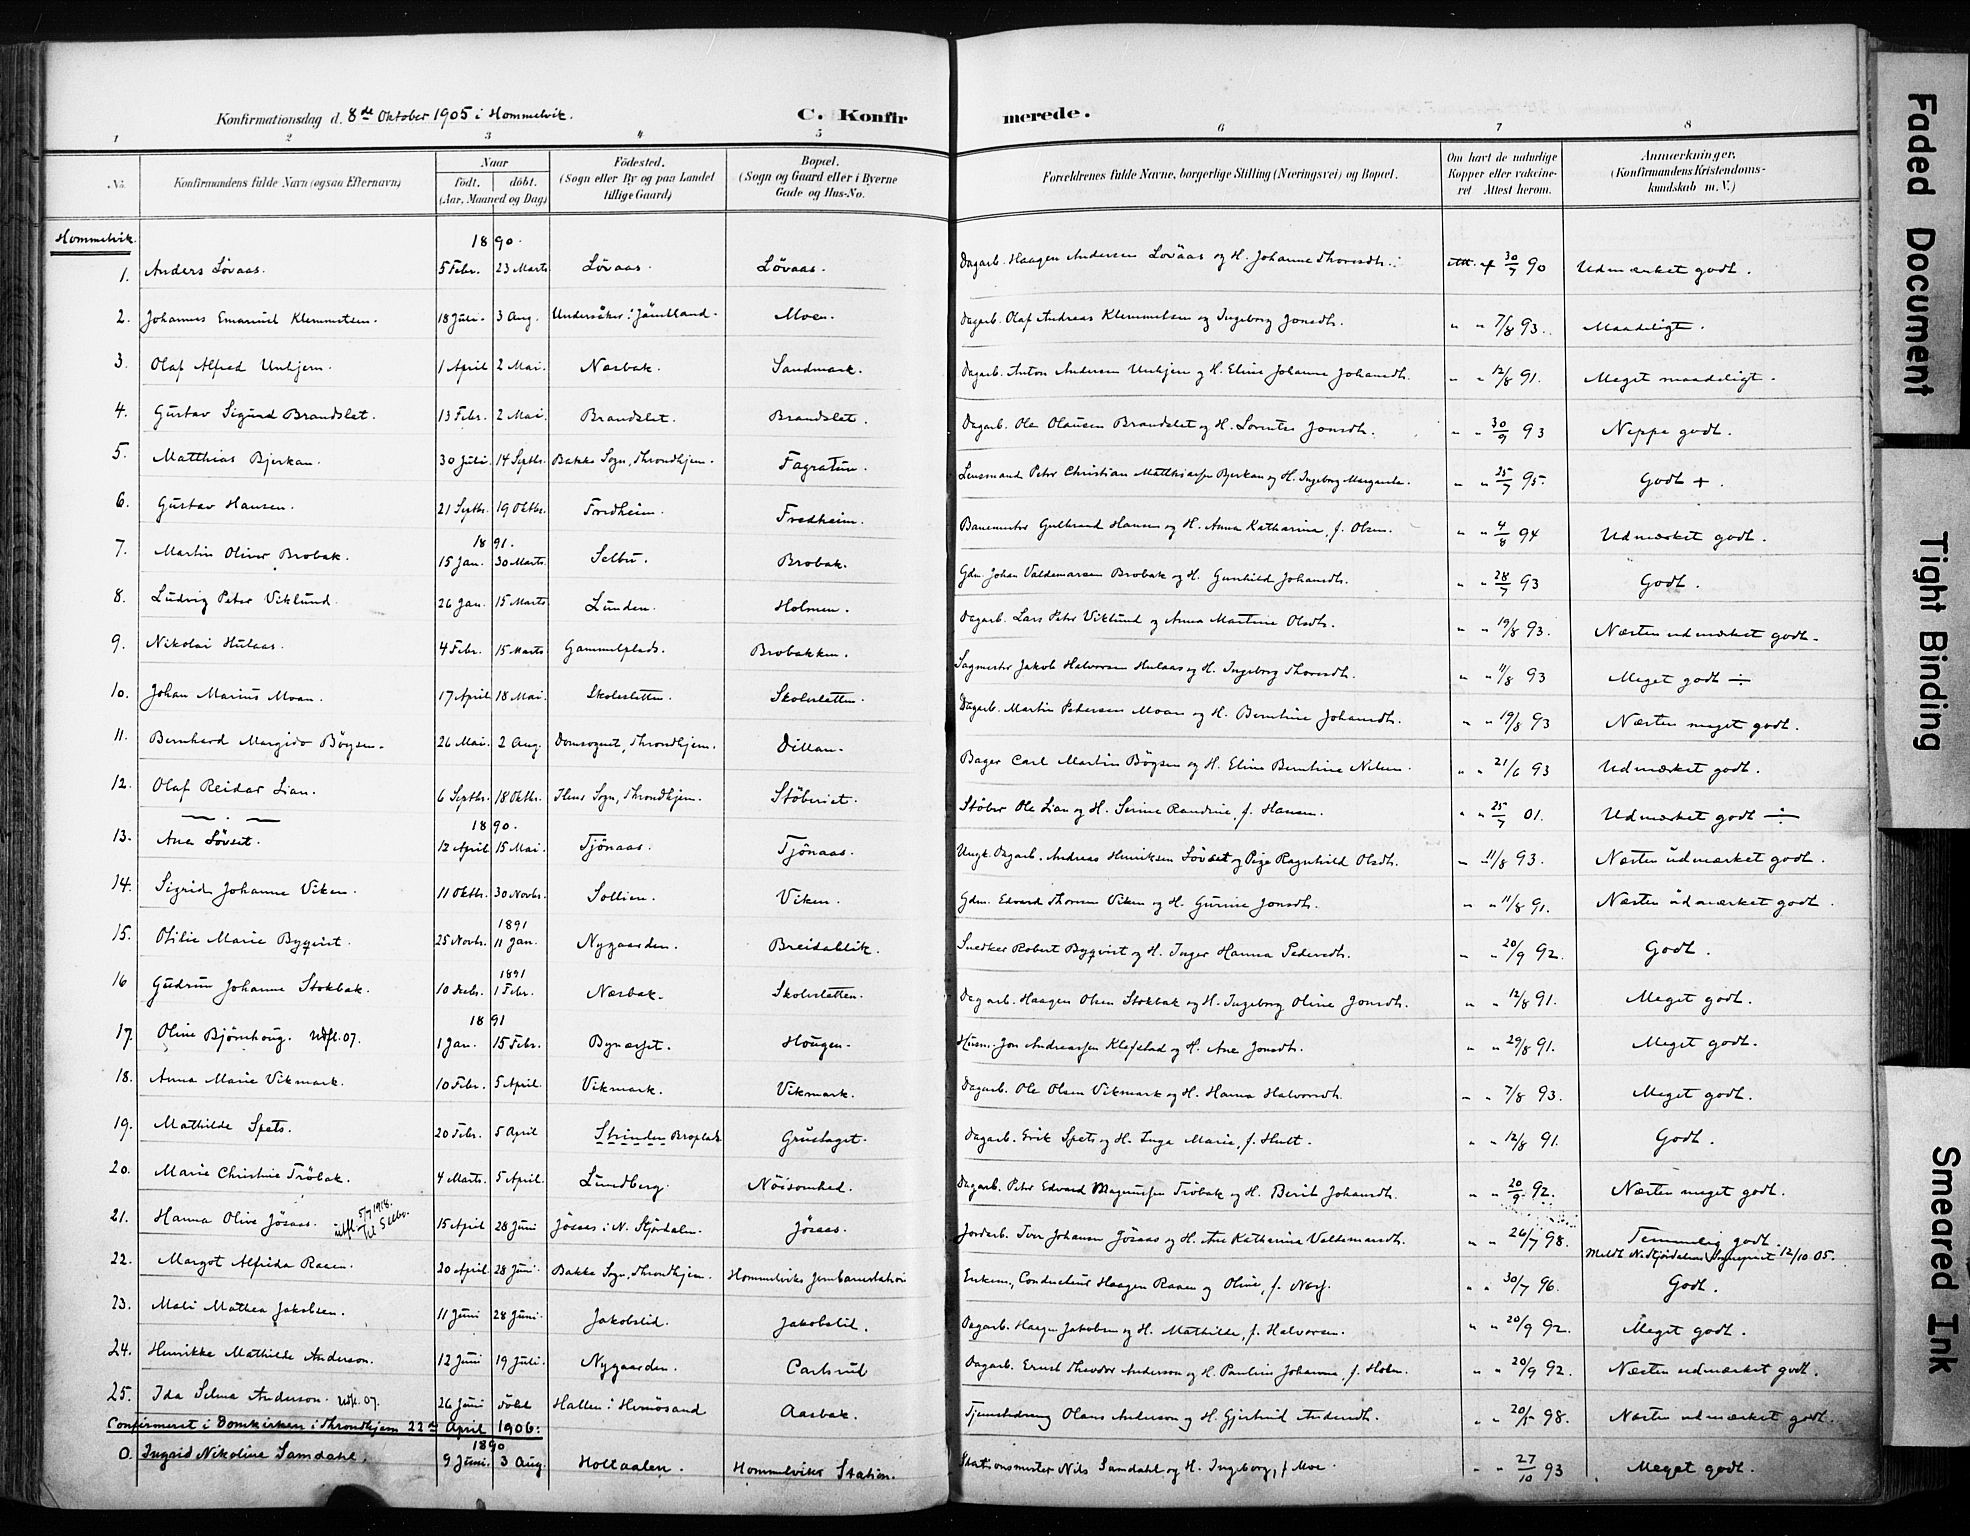 Konfirmationsdag d. 8de Oktober 1905 i Hommelvik. C. Konfirmerede.
1 2 3 4 5 6 7 8
No. Konfirmandens fulde Navn (ogsaa Efternavn) Naar födt. döbt. (Aar, Maaned og Dag) Födested. (Sogn eller By og paa Landet tillige Gaard) Bopæl. (Sogn og Gaard eller i Byerne Gade og Hus-No. Forældrenes fulde Navne, borgerlige Stilling (Næringsvei) og Bopæl. Om havt de naturlige Kopper eller vakcineret Attest herom. Anmærkninger. (Konfirmandens Kristendomskundskab m. V.)
Hommelvik. 1890.
1. Anders Lövaas. 5 Febr. 23 Marts Lövaas. Lövaas. Dagarb. Haagen Andersen Lövaas og H. Johanne Thoresdtr. Att. af 30/7 90 Udmærket godt.
2. Johannes Emanuel Klemmetsen. 18 Juli. 3 Aug. Undersåker i Jämtland. Moen. Dagarb. Olaf Andreas Klemmetsen og Ingeborg Jonsdtr. " " 7/8 93. Maadeligt.
3. Olaf Alfred Unhjem. 1 April 2 Mai. Næsbak. Sandmark. Dagarb. Anton Andersen Unhjem og H. Eline Johanne Johansdtr. " " 12/8 91. Meget maadeligt.
4. Gustav Sigurd Brandslet. 13 Febr. 2 Mai. Brandslet. Brandslet. Dagarb. Ole Olausen Brandslet og H. Lorentse Jonsdtr. " " 30/9 93 Neppe godt.
5. Matthias Bjerkan. 30 Juli. 14 Septbr. Bakke Sogn, Throndhjem. Fagratun. Lensmand Peter Christian Matthiasen Bjerkan og H. Ingeborg Margarete. " " 25/7 95. Godt +.
6. Gustav Hansen. 21 Septbr. 19 Oktbr. Fredheim. Fredheim. Banemester Gulbrand Hansen og H. Anna Katharina, f. Olsen. " " 4/8 94 Udmærket godt.
1891.
7. Martin Oliver Brobak. 15 Jan. 30 Marts. Selbu. Brobak. Gdm. Johan Valdemarsen Brobak og H. Gunhild Johansdtr. " " 28/7 93 Godt.
8. Ludvig Peter Viklund. 26 Jan. 15 Marts Lunden. Holmen. Dagarb. Lars Peter Viklund og Anna Martine Olsdtr. " " 19/8 93. Næsten udmærket godt.
9. Nikolai Hulaas. 4 Febr. 15 Marts Gammelplads. Brobakken. Sagmester Jakob Halvorsen Hulaas og H. Ingeborg Thoresdtr. " " 11/8 93 Meget godt ÷
10. Johan Marius Moan. 17 April 18 Mai. Skolesletten. Skolesletten. Dagarb. Martin Pedersen Moan og H. Berntine Johansdtr. " " 19/8 93 Næsten meget godt.
11. Bernhard Margido Bögsen. 26 Mai. 2 Aug. Domsognet, Throndhjem. Dillan. Bager Carl Martin Bögsen og H. Eline Berntine Nilsen. " " 21/6 93 Udmærket godt.
12. Olaf Reidar Lian. 6 Septbr. 18 Oktbr. Ilens Sogn, Throndhjem. Stöberiet. Stöber Ole Lian og H. Serine Randine, f. Hansen. " " 25/7 01. Udmærket godt ÷
1890.
13. Ane Lövset. 12 April 15 Mai. Tjönaas. Tjönaas. Ungk. Dagarb. Andreas Henriksen Lövset og Pige Ragnhild Olsdtr. " 11/8 93. Næsten udmærket godt.
14. Sigrid Johanne Viken. 11 Oktbr. 30 Novbr. Sollien. Viken. Gdm. Edvard Thorsen Viken og H. Gurine Jonsdtr. " " 11/8 91. Næsten udmærket godt.
15. Otilie Marie Bygqvist. 25 Novbr. 1891 11 Jan. Nygaarden. Breidablik. Snedker Robert Bygqvist og H. Inger Hanna Pedersdtr. " " 20/9 92. Godt.
16 Gudrun Johanne Stokbak. 10 Decbr. 1891 1 Febr. Næsbak. Skolesletten. Dagarb. Haagen Olsen Stokbak og H. Ingeborg Oline Jonsdtr. " " 12/8 91. Meget godt.
1891
17. Oline Björnhoug. Udfl. 07. 1 Jan. 15 Febr. Bynæsset. Hougen. Husm. Jon Andreassen Klefstad og H. Ane Jonsdtr. " " 29/8 91. Meget godt.
18. Anna Marie Vikmark. 10 Febr. 5 April. Vikmark. Vikmark. Dagarb. Ole Olsen Vikmark og H. Hanna Halvorsdtr. " " 7/8 93. Meget godt.
19. Mathilde Spets. 20 Febr. 5 April Strinden Broplads Grustaget. Dagarb. Erik Spets og H. Inga Marie, f. Hult. " " 12/8 91. Godt.
20. Marie Christine Tröbak. 4 Marts. 5 April. Lundberg. Nöisomhed. Dagarb. Peter Edvard Magnussen Tröbak og H. Berit Johansdtr. " " 20/9 92. Næsten meget godt.
21. Hanna Olive Jösaas. utfl. 5/7 1918. Til Selbu. 15 April 28 Juni Jösaas i N. Stjördalen. Jösaas. Jordarb. Iver Johansen Jösaas og H. Ane Katharina Valdemarsdtr. " " 26/7 98. Temmelig godt.
Meldt Nedstjördalens Sognepræst 12/10 05.
22. Margot Alfrida Raaen. 20 April 28 Juni. Bakke Sogn, Throndhjem. Hommelviks Jernbanestation Enkem., Conducteur Haagen Raaen og Oline, f. Næss. " " 30/7 96. Godt.
23. Mali Mathea Jakobsen. 11 Juni 28 Juni. Jakobslid. Jakobslid. Dagarb. Haagen Jakobsen og H. Mathilde, f. Halvorsen. " " 20/9 92. Meget godt.
24. Henrikke Mathilde Anderson. 12 Juni 19 Juli. Nygaarden. Carlsrud Dagarb. Ernst Theodor Anderson og H. Pauline Johanne, f. Holm. " " 20/9 92. Næsten udmærket godt.
25. Ida Selma Anderson. Udfl. 07. 26 Juni döbt Hallen i Hernösand Aasbak. Tjenestedreng Olans Anderson og H. Gjertrud Andersdtr. " " 20/5 98. Næsten udmærket godt.
Confirmeret i Domkirken i Throndhjem 22de April 1906:
1890
0. Ingrid Nikoline Samdahl. 9 Juni. 3 Aug. Holtaalen. Hommelviks Station. Stationsmester Nils Samdahl og H. Ingeborg, f. Moe. " " 27/10 93 Meget godt.
Faded Document
Tight Binding
Smeared Ink